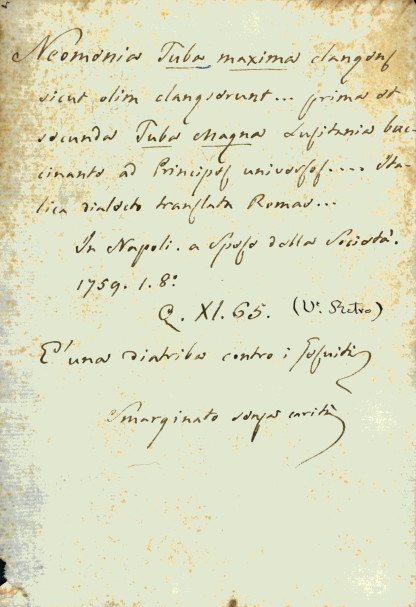 Neomenia Tuba maxima clangens
sicut olim clangserunt... prima et
secunda Tuba Magna Lusitania buc-
cinante ad Principes universos.... Ita-
lica dialecto translata Romae...
In Napoli. a Spese della Società.
1759. 1. 8.°
Q. XI. 65. (V.
E' una diatriba contro i Gesuiti
Smarginato senza carità